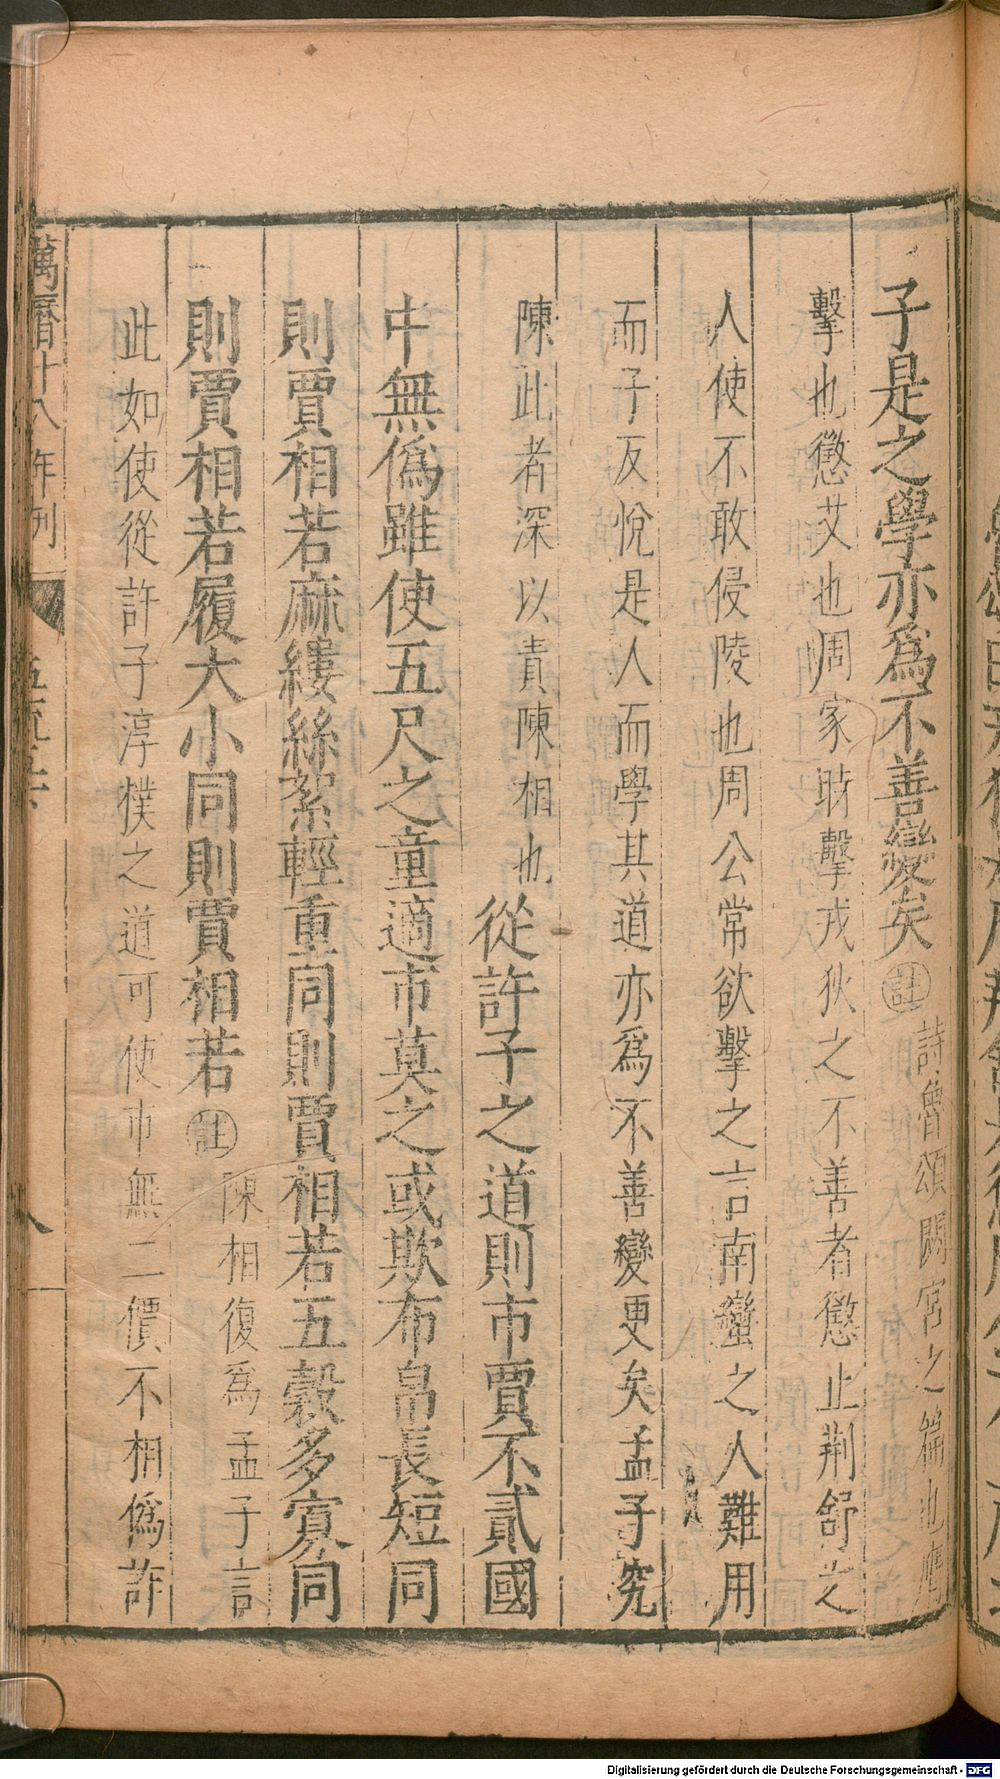 子是之學亦爲不善變矣註詩魯頌閟宮之篇也膺
擊也懲艾也周家時擊戎狄之不善者懲止荆舒之
人使不敢侵陵也周公常欲擊之言南蠻之人難用
而子反悅是人而學其道亦爲不善變更矣孟子究
陳此者深以責陳相也從許子之道則市賈不貳國
中無僞雖使五尺之童適市莫之或欺布帛長短同
則賈相若麻縷絲絮輕重同則賈相若五穀多寡同
則賈相若屨大小同則賈相若註陳相復爲孟子言
此如使從許子淳樸之道可使市無二價不相僞詐
萬曆十八年刊
八
Digitalisierung gefördert durch die Deutsche Forschungsgemeinschaft - DFG